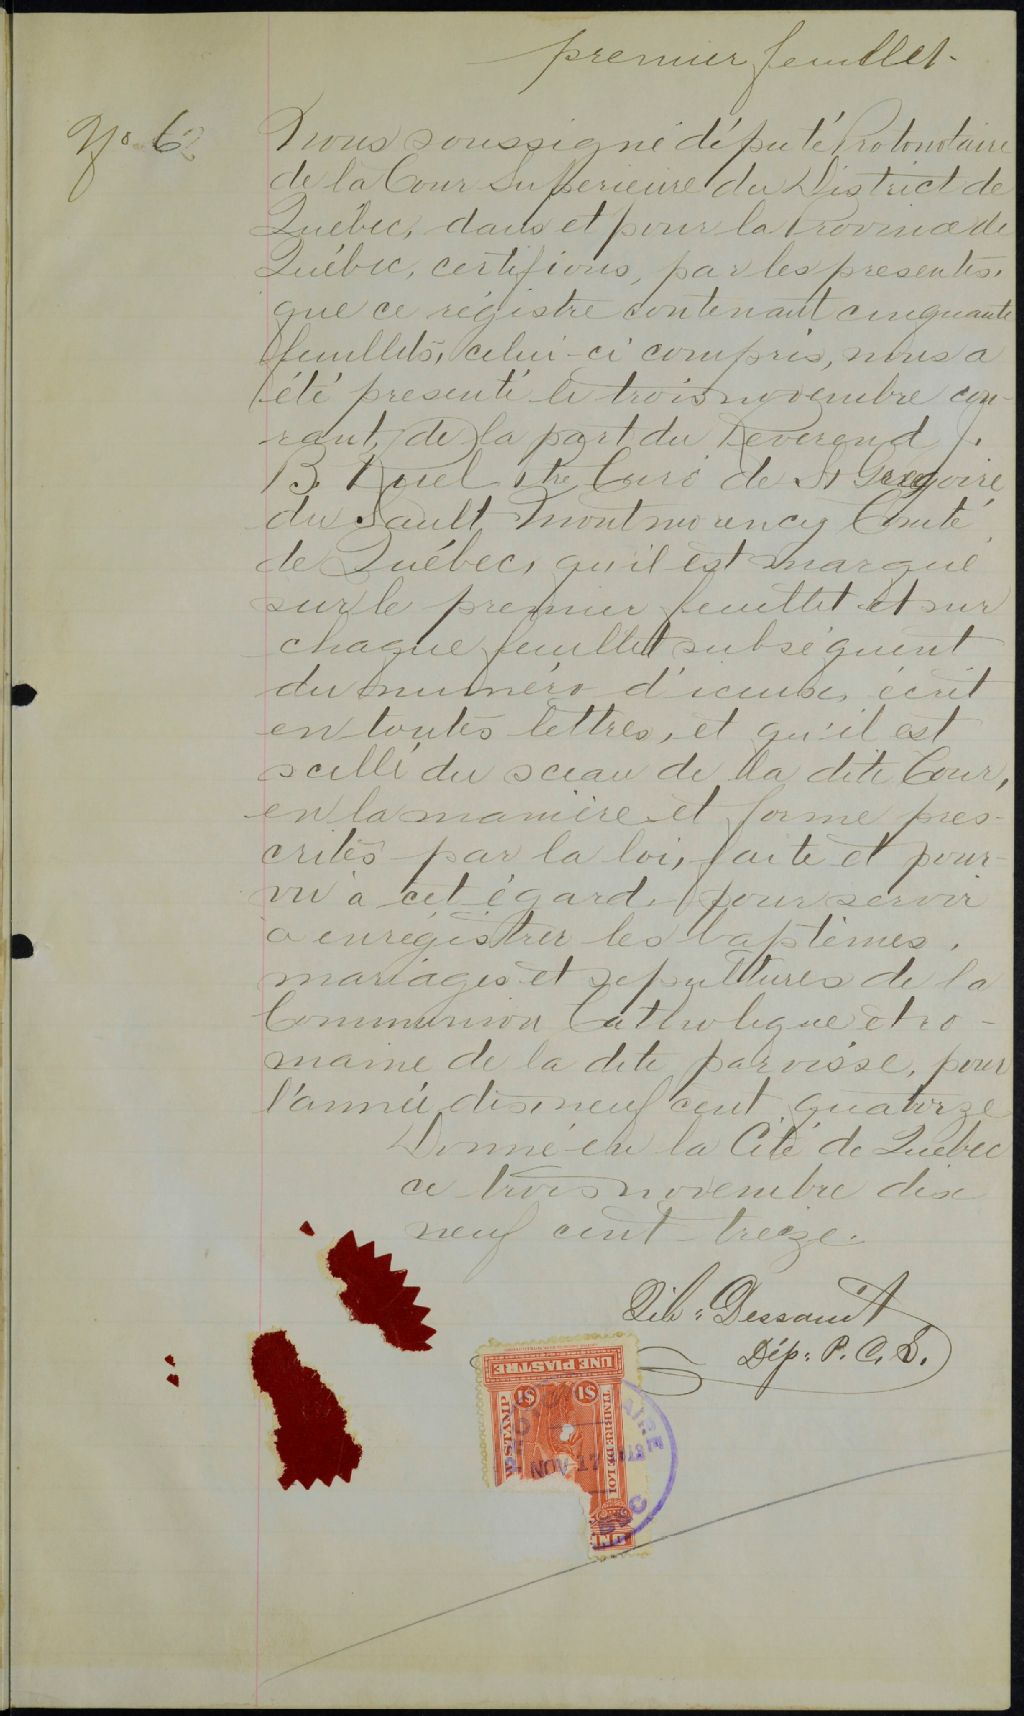 premier feuillet.
No 62
Nous soussigné député Protonotaire
de la Cour Supérieure du District de
Québec, dans et pour la Province de
Québec, certifions, par les présentes,
que ce régistre contenant cinquante
feuillets, celui-ci compris, nous a
été présenté le trois novembre cou-
rant, de la part du Révérend J.
B. Ruel Ptre Curé de St Grégoire
du Sault Montmorency Comté
de Québec, qu'il est marqué
sur le premier feuillet et sur
chaque feuillet subséquent
du numéro d'iceux, écrit
en toutes lettres, et qu'il est
scellé du sceau de la dite Cour,
en la manière et forme pres-
crites par la loi, faite et pour-
vu à cet égard, pour servir
à enrégistrer les baptêmes,
mariages et sépultures de la
Communion Catholique et ro-
maine de la dite paroisse, pour
l'année dix neuf cent quatorze
Donné en la Cité de Québec
ce trois novembre dix
neuf cent treize.
Dessault
Dép: P. C. S.
UNE PIASTRE
$1 $1
STAMP
TIMBRE DE LOI
NOV 17